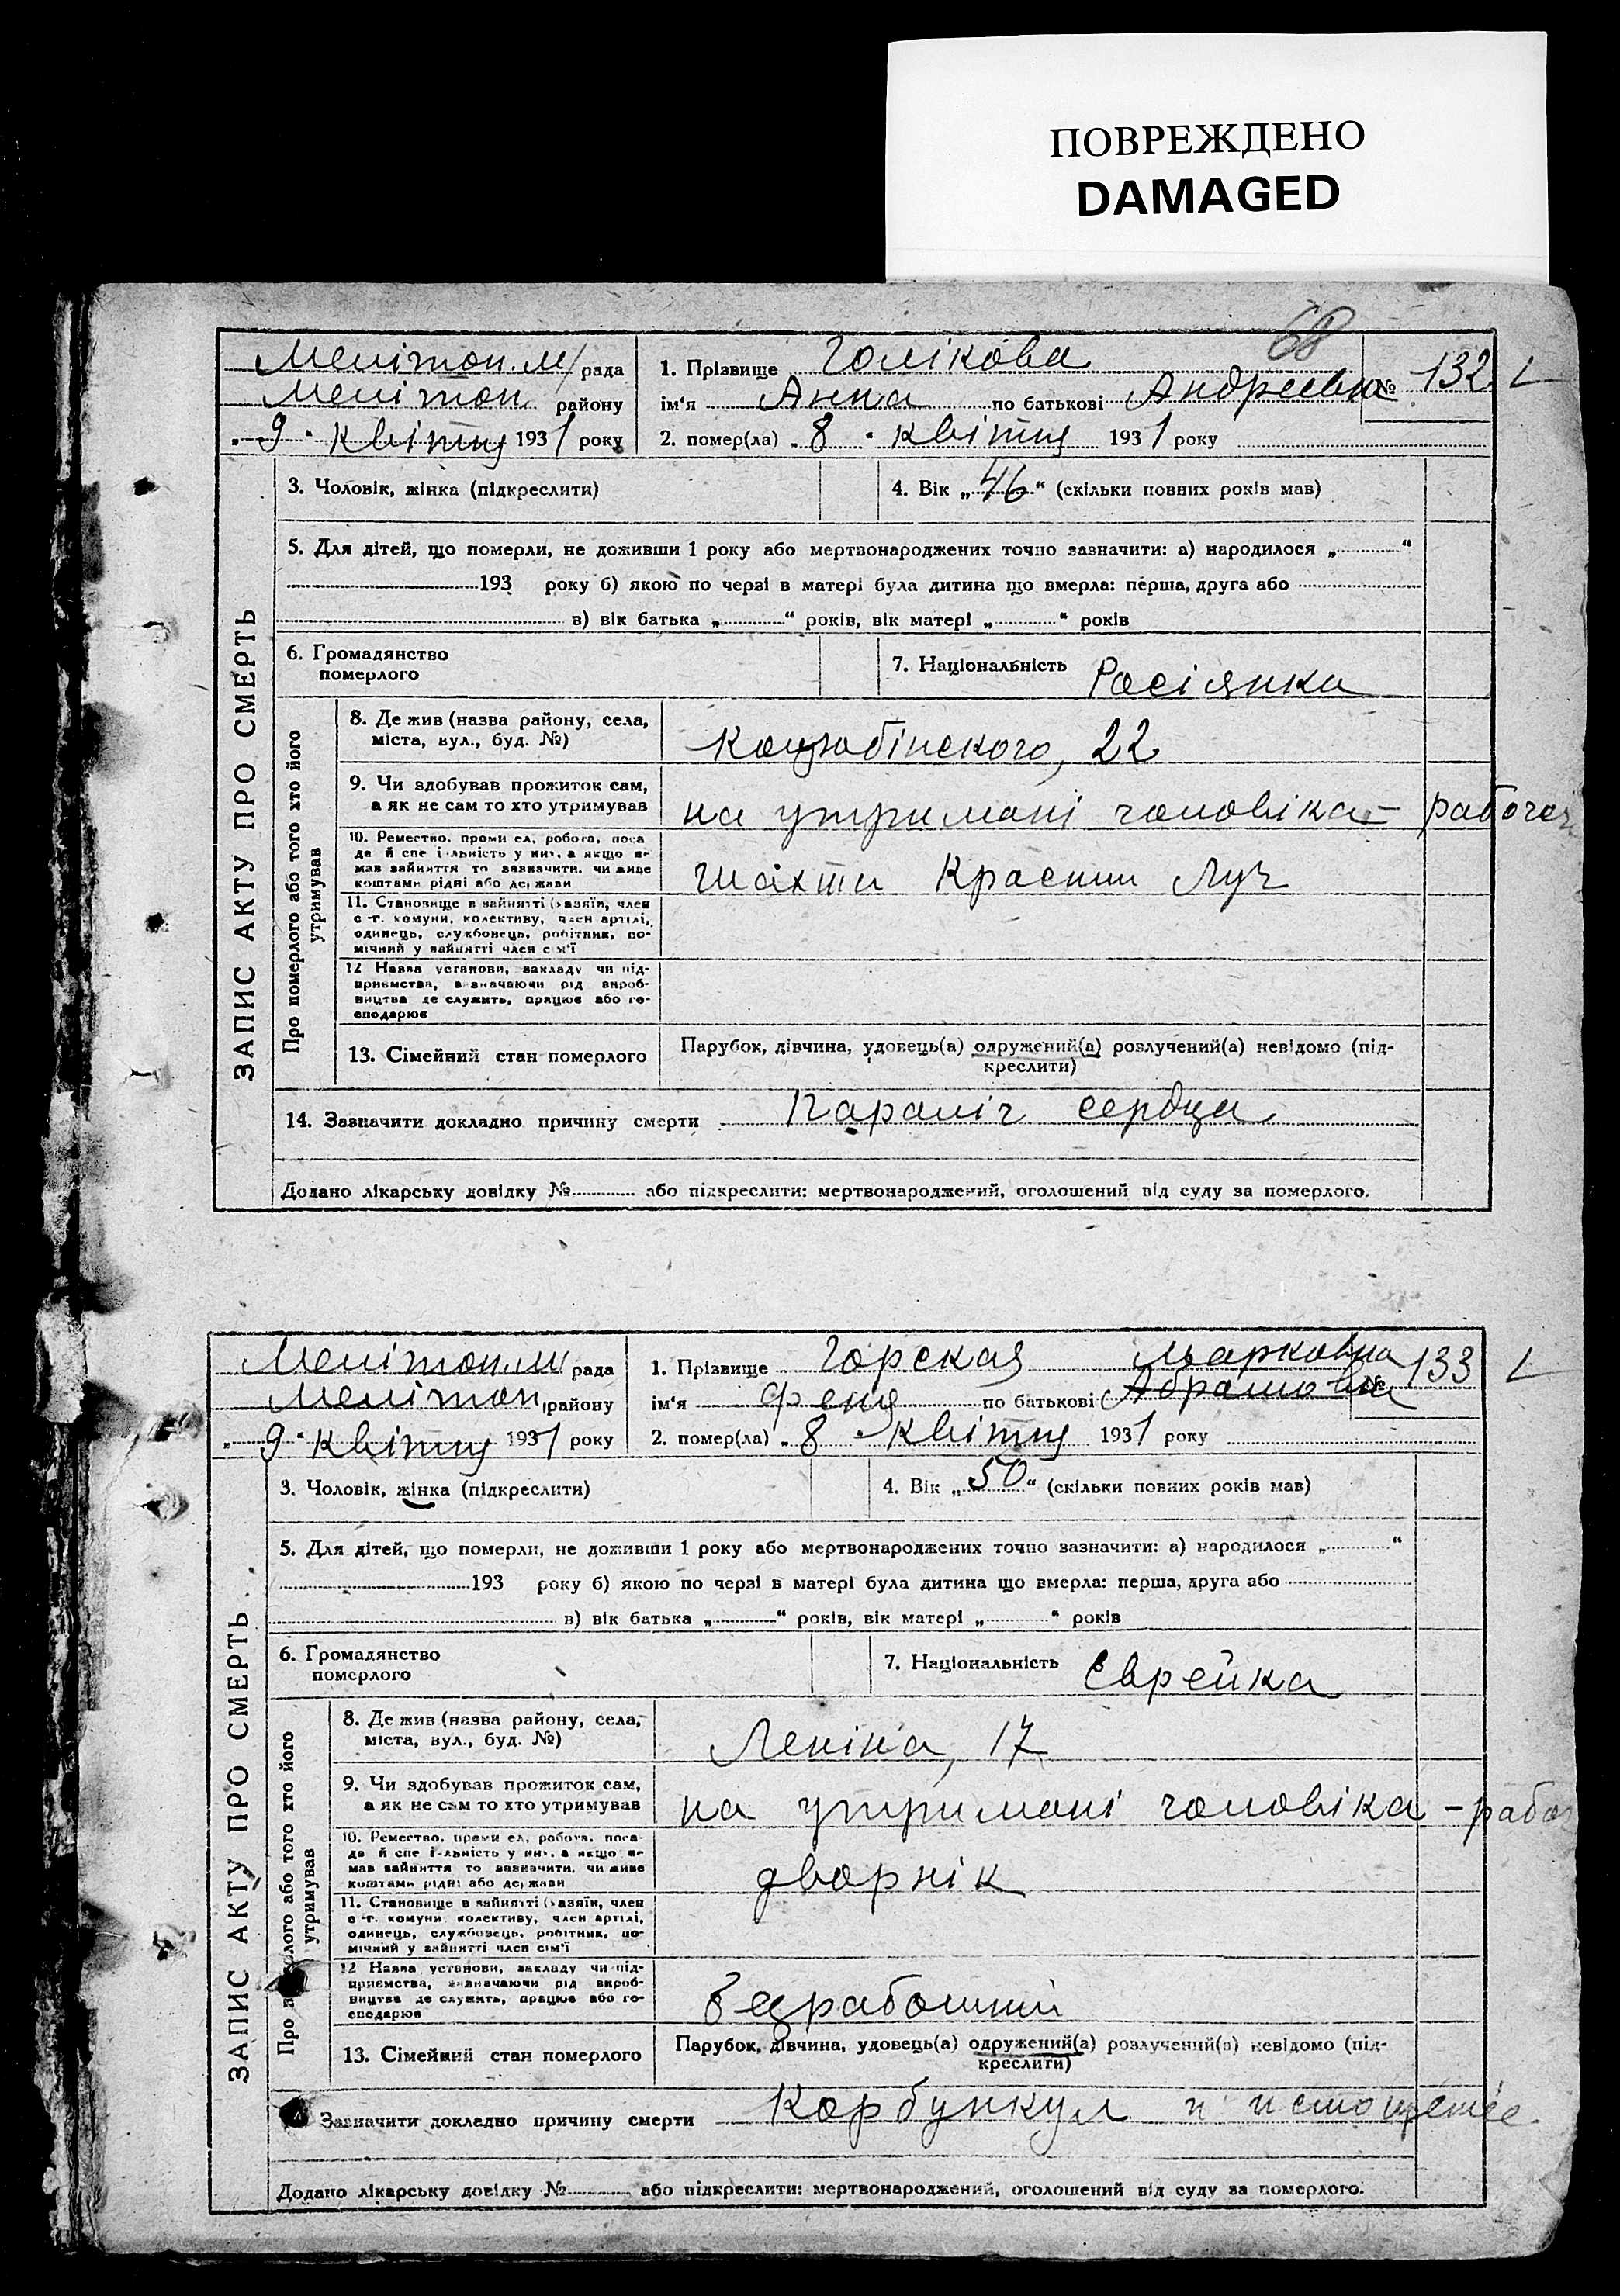 ПОВРЕЖДЕНО
DAMAGED
68
Мелітоп. м/ рада
Мелітоп району
„ 9 " квітня 1931 року
1. Прізвище Голікова
ім'я Анна по батькові Андреевна
№ 132
2. помер(ла) „ 8 " квітня 1931 року
ЗАПИС АКТУ ПРО СМЕРТЬ
3. Чоловік, жінка (підкреслити)
4. Вік „ 46 “ (скільки повних років мав)
5. Для дітей, що померли, не доживши 1 року або мертвонароджених точно зазначити: а) народилося „ “
193 року б) якою по черзі в матері була дитина що вмерла: перша, друга або
в) вік батька „ “ років, вік матері „ “ років
6. Громадянство
померлого
7. Національність Росіянка
Про померлого або того хто його
утримував
8. Де жив (назва району, села,
міста, вул., буд. №)
Коцюбінского, 22
9. Чи здобував прожиток сам,
а як не сам то хто утримував
на утримані чоловіка – рабочег
10. Ремество, проми ел, робота, поса
да й спе і льність у ни , а якщо не
мав зайняття то зазначити, чи живе
коштами рідні або держави
шахти Красний Луч
11. Становище в зайнятті (хазяїн, член
с-г. комуни, колективу, член артілі,
одинець, службовець, робітник, по-
мічний у зайнятті член сім'ї
12 Назва установи, закладу чи під-
приємства, зазначаючи рід вироб-
ництва де служить, працює або го-
сподарює
13. Сімейний стан померлого
Парубок, дівчина, удовець(а) одружений(а) розлучений(а) невідомо (під-
креслити)
14. Зазначити докладно причину смерти Параліч сердца
Додано лікарську довідку № або підкреслити: мертвонароджений, оголошений від суду за померлого.
Мелітоп. м/ рада
Мелітоп. району
„ 9 " квітня 1931 року
1. Прізвище Горская
Марковна
ім'я Феня по батькові (Абрамовна
№ 133
2. помер(ла) „ 8 " квітня 1931 року
ЗАПИС АКТУ ПРО СМЕРТЬ
3. Чоловік, жінка (підкреслити)
4. Вік „ 50 “ (скільки повних років мав)
5. Для дітей, що померли, не доживши 1 року або мертвонароджених точно зазначити: а) народилося „ “
193 року б) якою по черзі в матері була дитина що вмерла: перша, друга або
в) вік батька „ “ років, вік матері „ “ років
6. Громадянство
померлого
7. Національність Єврейка
Про або того хто його
утримував
8. Де жив (назва району, села,
міста, вул., буд. №)
Леніна, 17
9. Чи здобував прожиток сам,
а як не сам то хто утримував
на утримані чоловіка – рабо
10. Ремество, проми ел, робота, поса-
да й спе і-льність у ни , а якщо не
мав зайняття то зазначити, чи живе
коштами рідні або держави
дворнік
11. Становище в зайнятті (хазяїн, член
с-г. комуни колективу, член артілі,
одинець, службовець, робітник, по-
мічний у зайнятті член сім'ї
12 Назва установи, закладу чи під-
приємства, зазначаючи рід вироб-
ництва де служить, працює або го-
сподарює
13. Сімейний стан померлого
Парубок, дівчина, удовець(а) одружений(а) розлучений(а) невідомо (під-
креслити)
Зазначити докладно причину смерти Корбункул и истощение
Додано лікарську довідку № або підкреслити: мертвонароджений, оголошений від суду за померлого.